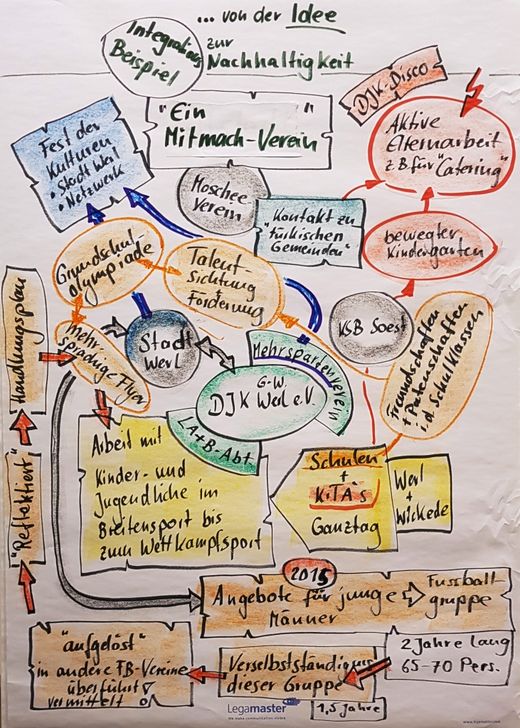 ... von der Idee
zur
Nachhaltigkeit
Integrations
Beispiel
"Ein
Mitmach-Verein"
DJK-Disco
Aktive
Elternarbeit
z.B. für "Catering"
Fest der
Kulturen
• Stadt Werl
• Netzwerk
Moschee
verein
Kontakt zu
"türkischen
Gemeinden"
bewegter
Kindergarten
Grundschul-
olympiade
Talent-
Sichtung
Förderung
KSB Soest
Freundschaften
+ Patenschaften
i.d. Schulklassen
mehr-
sprachige Flyer
Stadt
Werl
Mehrspartenverein
G-W.
DJK Werl e.V.
LA+B-Abt.
Handlungsplan
"Reflektiert"
Arbeit mit
Kinder- und
Jugendliche im
Breitensport bis
zum Wettkampfsport
Schulen
+
KiTA's
Ganztag
Werl
+
Wickede
2015
Angebote für junge
Männer
Fussball
gruppe
2 Jahre lang
65-70 Pers.
Verselbstständig
dieser Gruppe
1,5 Jahre
"aufgelöst"
in andere FB-Vereine
überführt
vermittelt
Legamaster